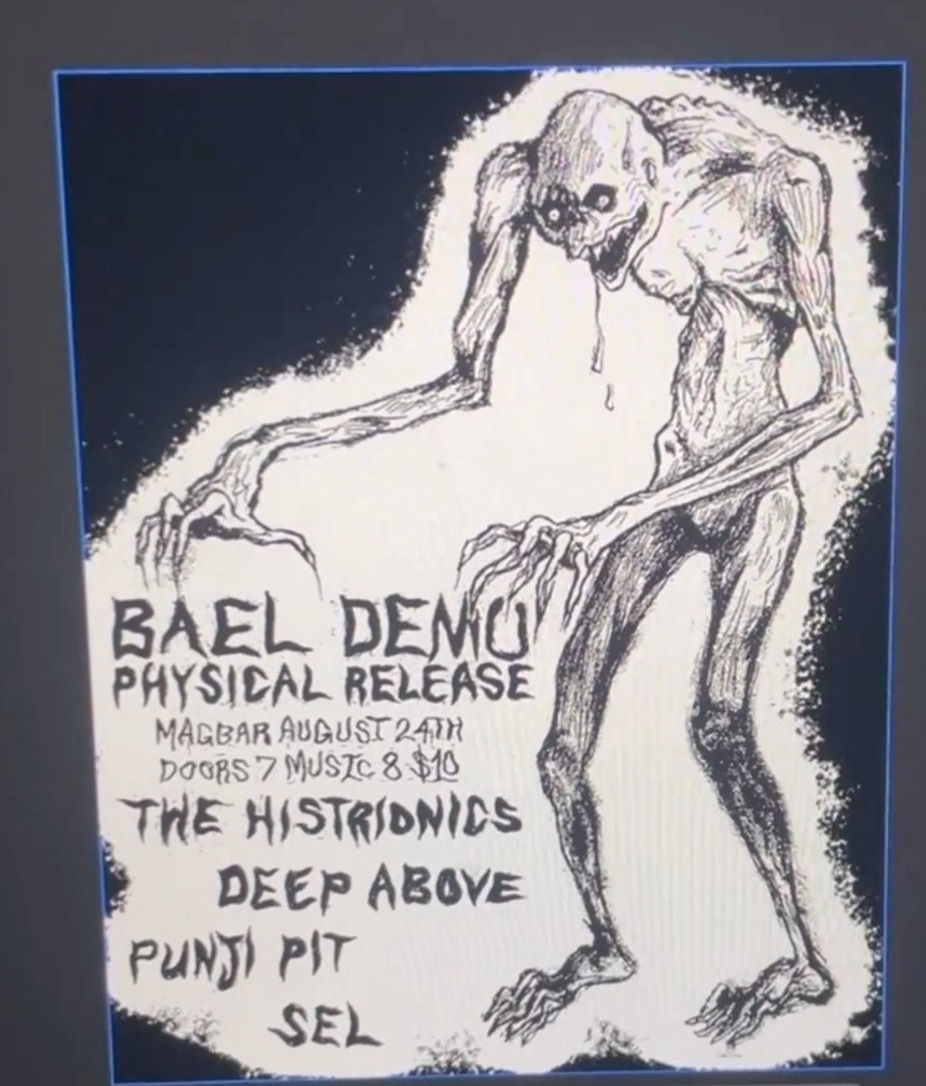 BAEL DEMO
PHYSICAL RELEASE
MAGBAR AUGUST 24TH
DOORS 7 MUSIC 8 $10
THE HISTRIONICS
DEEP ABOVE
PUNJI PIT
SEL